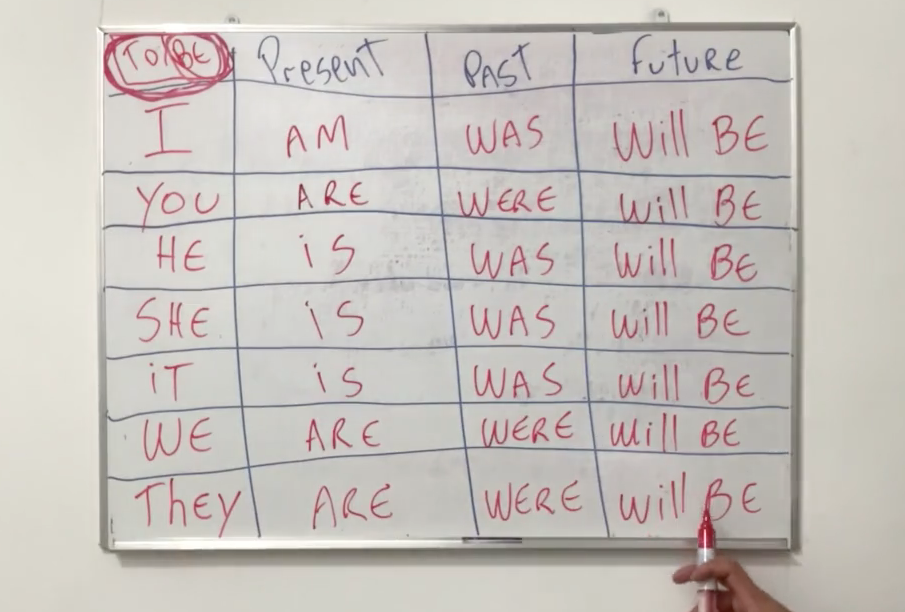 TO BE Present PAST Future
I AM WAS Will BE
YOU ARE WERE Will BE
HE iS WAS Will BE
SHE iS WAS Will BE
iT iS WAS Will BE
WE ARE WERE Will BE
ThEy ARE WERE Will BE